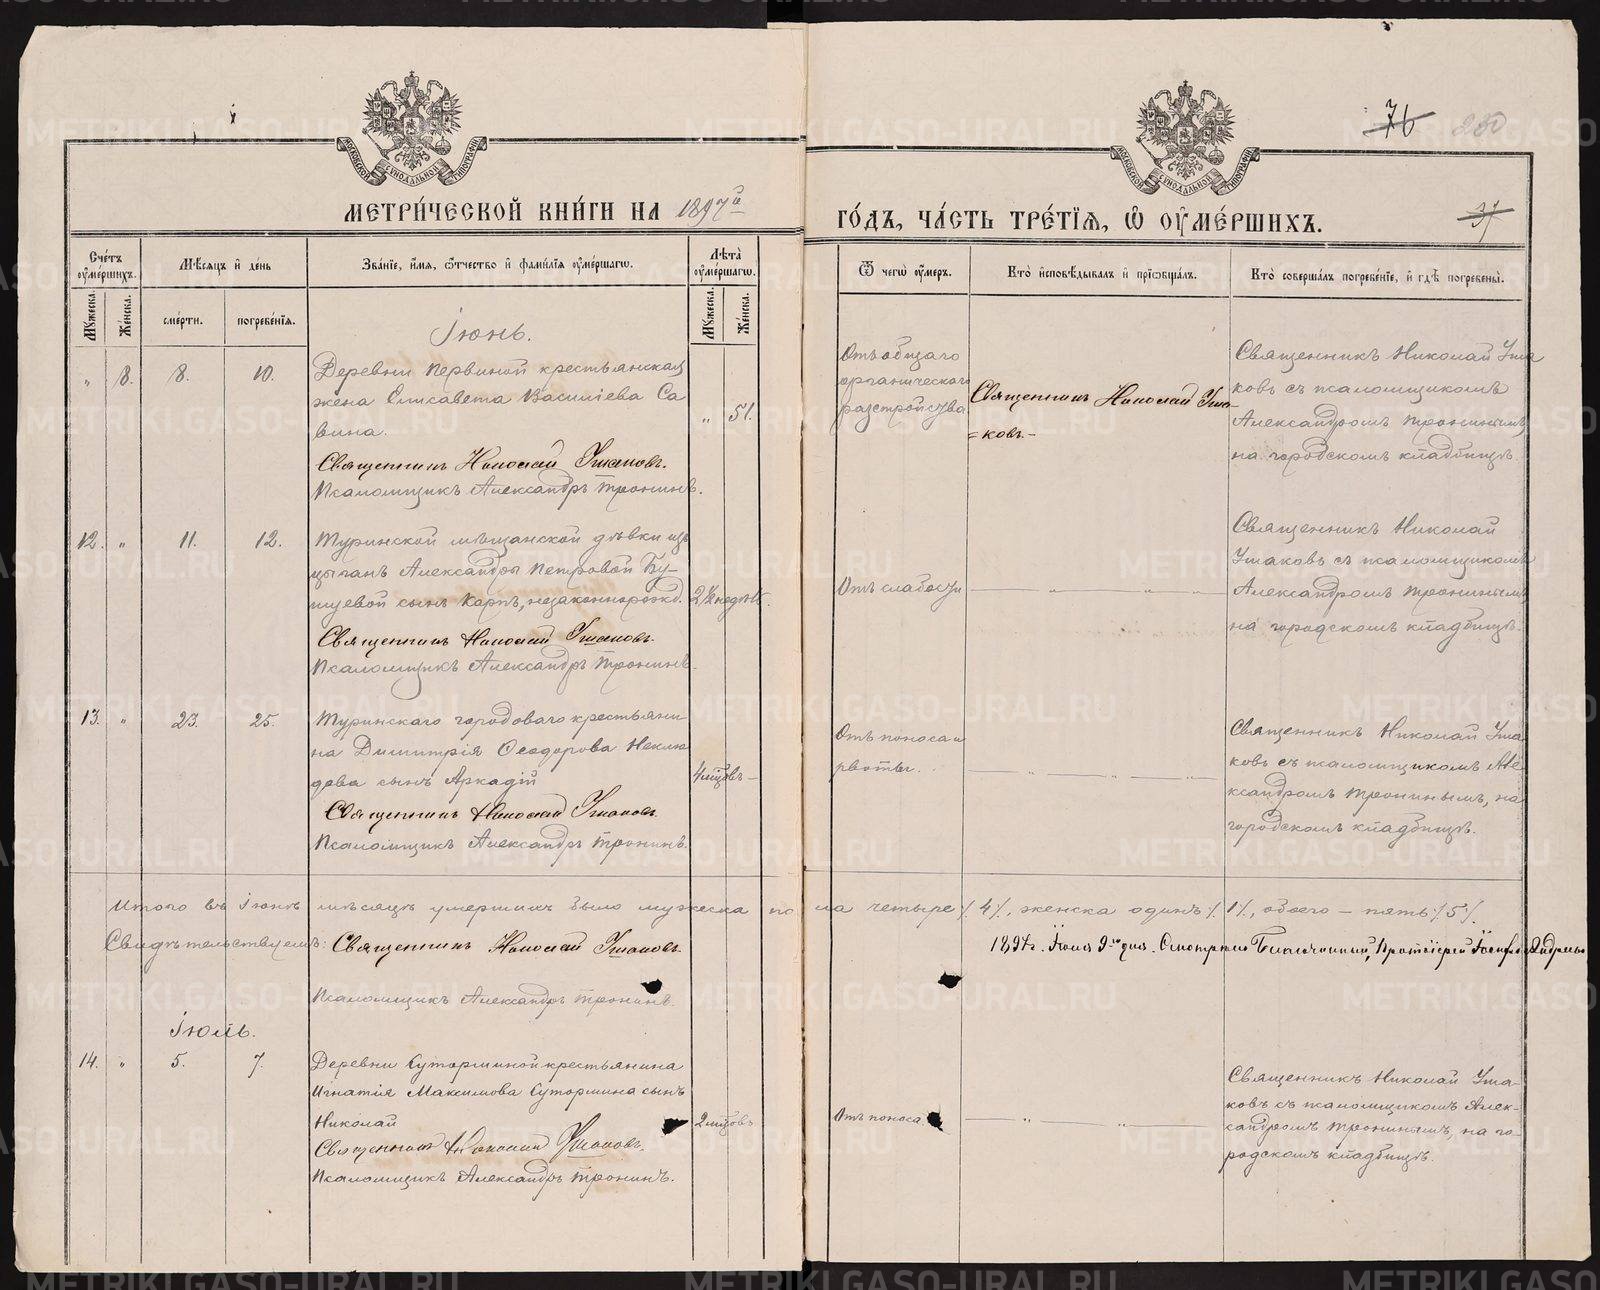 76 250
МОСКОВСКОЙ СѴНОДАЛЬНОЙ ТИПОГРАФІИ
МОСКОВСКОЙ СѴНОДАЛЬНОЙ ТИПОГРАФІИ
МЕТРИ́ЧЕСКОЙ КНИ́ГИ НА 1897й
ГО́ДЪ, ЧА́СТЬ ТРЕ́ТІѦ, Ѡ҆ ОУ҆МЕ́РШИХЪ.
37
Сче́тъ оу҆ме́ршихъ.
Мѣ́сяцъ и҆ де́нь
Зва́нїе, и҆́мя, ѻ҆́тчество и҆ фами́лїя оу҆ме́ршагѡ.
Лѣ́та оу҆ме́ршагѡ.
Ѿ чегѡ̀ оу҆́меръ.
Кто̀ и҆сповѣ́дывалъ и҆ прїѡбща́лъ.
Кто̀ соверша́лъ погребе́нїе, и҆ гдѣ̀ погребены̀.
Мꙋ́жеска.
Же́нска.
сме́рти.
погребе́нїя.
Мꙋ́жеска.
Же́нска.
Іюнь.
„ 8. 8. 10.
Деревни Первиной крестьянская
жена Елисавета Василіева Са
вина.
„ 51.
Священникъ Николай Ушаковъ.
Псаломщикъ Александръ Тронинъ.
Отъ общаго
органическаго
разстройства
Священникъ Николай Уша
=ковъ.-
Священникъ Николай Уша
ковъ съ псаломщикомъ
Александромъ Тронинымъ,
на городскомъ кладбищѣ.
12. „ 11. 12.
Туринской мѣщанской дѣвки изъ
цыганъ Александры Петровой Бу-
шуевой сынъ Карпъ, незаконнорожд.
2½ недѣль.
Священникъ Николай Ушаковъ.
Псаломщикъ Александръ Тронинъ.
Отъ слабости
„ „ „
Священникъ Николай
Ушаковъ съ псаломщикомъ
Александромъ Тронинымъ
на городскомъ кладбищѣ.
13. „ 23. 25.
Туринскаго городоваго крестьяни-
на Димитрія Ѳеодорова Неклю
дова сынъ Аркадій
4 мѣсцовъ -
Священникъ Николай Ушаковъ.
Псаломщикъ Александръ Тронинъ.
Отъ поноса и
рвоты.
„ „ „
Священникъ Николай Уша
ковъ съ псаломщикомъ Але
ксандромъ Тронинымъ, на
городскомъ кладбищѣ.
Итого въ Іюнѣ мѣсяцѣ умершихъ было мужеска пола четыре /. 4 /., женска одинъ /. 1 /., обоего – пять /. 5 /.
Свидѣтельствуемъ: Священникъ Николай Ушаковъ.
1897г. Іюля 9го дня. Смотрѣлъ Благочинный, Протоіерей
Псаломщикъ Александръ Тронинъ.
Іюль.
14. „ 5. 7.
Деревни Суторминой крестьянина
Игнатія Максимова Сутормина сынъ
Николай
2 мѣсцовъ
Священникъ Николай Ушаковъ.
Псаломщикъ Александръ Тронинъ.
Отъ поноса.
„ „
Священникъ Николай Уша-
ковъ съ псаломщикомъ Алек-
сандромъ Тронинымъ, на го-
родскомъ кладбищѣ.
METRIKI.GASO-URAL.RU